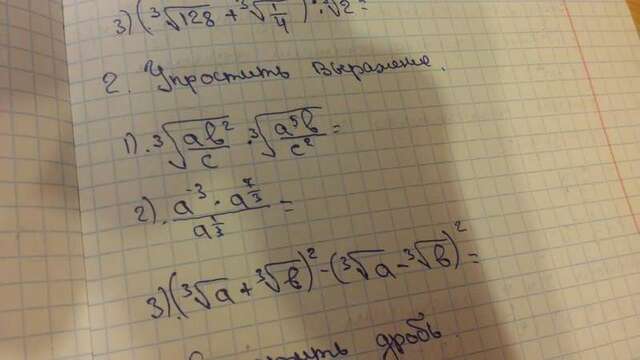 3) (∛128 + ∛(1/4)) : ∛2 =
2. Упростить выражение.
1). ∛(ab²/c) · ∛(a⁵b/c²) =
2). (a⁻³ · a^(7/3))/a^(1/3) =
3). (∛a + ∛b)² - (∛a - ∛b)² =
дробь.